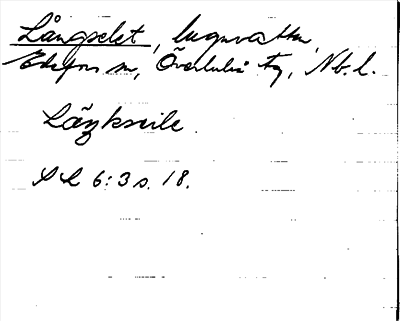 Långselet, lugnvatten,
Edefors sn, Överluleå tg, Nb. l.
6:3 s. 18.